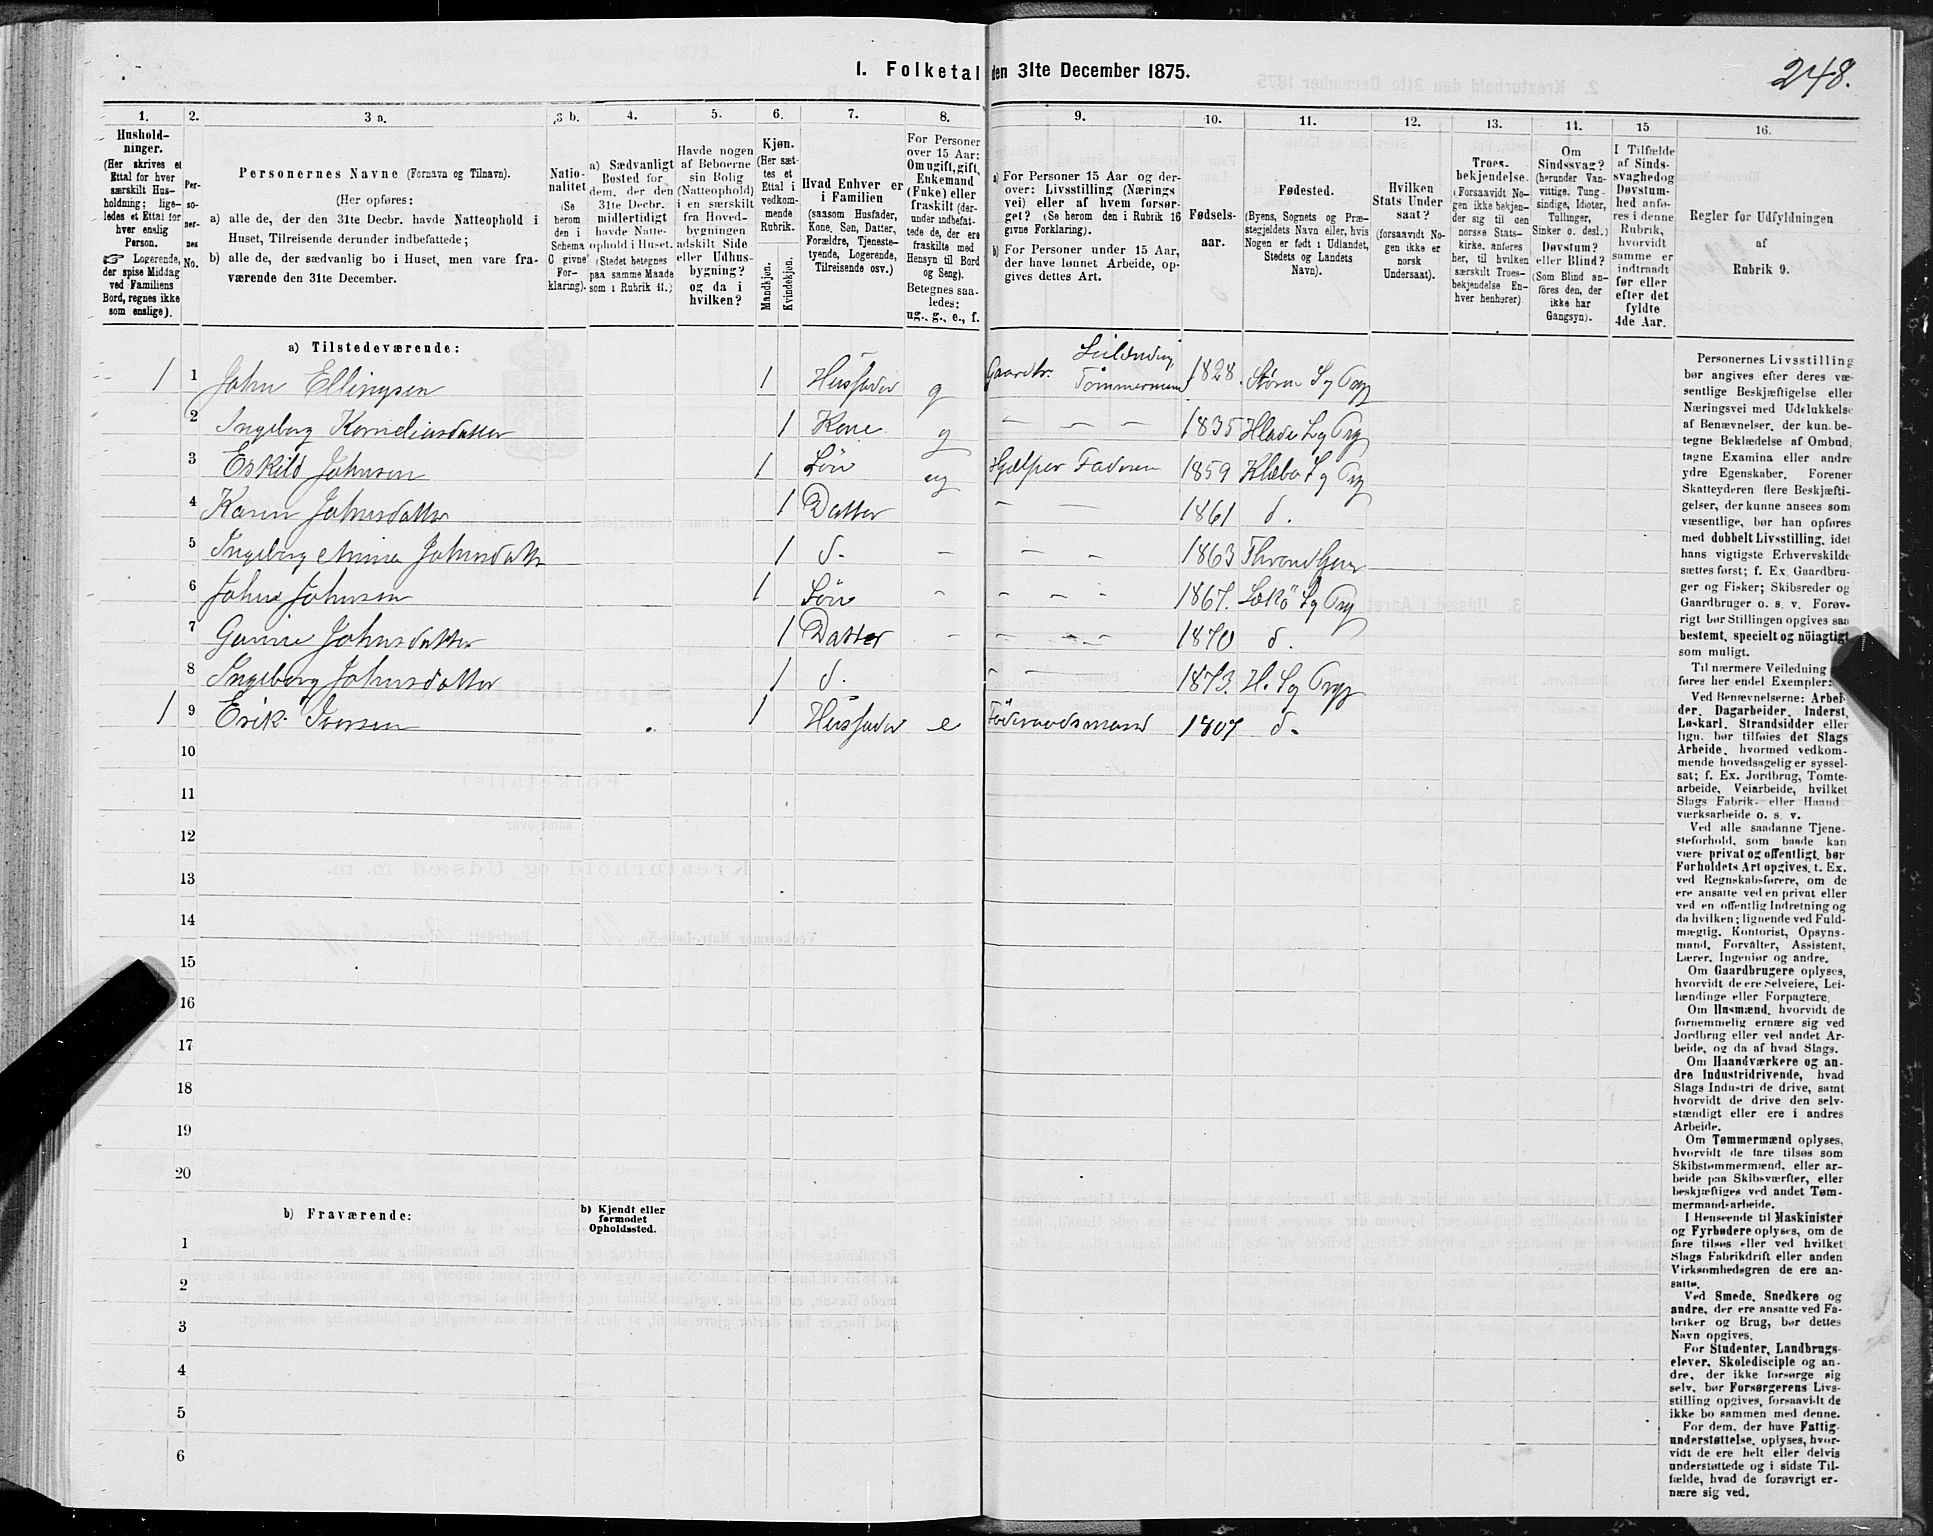 1. Folketal den 31te December 1875.
248.
1.
Hushold-
ninger.
(Her skrives et
Ettal for hver
særskilt Hus-
holdning; lige-
ledes et Ettal for
hver enslig
Person.
Logerende,
der spise Middag
ved Familiens
Bord, regnes ikke
som enslige).
2.
Per-
so-
ner-
nes
No.
3 a.
Personernes Navne (Fornavn og Tilnavn).
(Her opføres:
a) alle de, der den 31te Decbr. havde Natteophold i
Huset, Tilreisende derunder indbefattede;
b) alle de, der sædvanlig bo i Huset, men vare fra-
værende den 31te December.
3 b.
Natio-
nalitet
(Se
herom
den i
Schema
C givne
For-
klaring).
4.
a) Sædvanligt
Bosted for
dem, der den
31te Decbr.
midlertidigt
havde Natte-
ophold i Huset.
(Stedet betegnes
paa samme Maade
som i Rubrik 11.)
5.
Havde nogen
af Beboerne
sin Bolig
(Natteophold)
i en særskilt
fra Hoved-
bygningen
adskilt Side
eller Udhus-
bygning?
og da i
hvilken?
6.
Kjøn.
(Her sæt-
tes et
Ettal i
vedkom-
mende
Rubrik.
Mandkjøn.
Kvindekjøn.
7.
Hvad Enhver er
i Familien
(saasom Husfader,
Kone, Søn, Datter,
Forældre, Tjeneste-
tyende, Logerende,
Tilreisende osv.)
8.
For Personer
over 15 Aar:
Om ugift, gift,
Enkemand
(Enke) eller
fraskilt (der-
under indbefat-
tede de, der ere
fraskilte med
Hensyn til Bord
og Seng).
Betegnes saa-
ledes:
ug., g., e., f.
9.
a) For Personer 15 Aar og der-
over: Livsstilling (Nærings
vei) eller af hvem forsør-
get? (Se herom den i Rubrik 16
givne Forklaring).
b) For Personer under 15 Aar,
der have lønnet Arbeide, op-
gives dettes Art.
10.
Fødsels-
aar.
11.
Fødested.
(Byens, Sognets og Præ-
stegjeldets Navn eller, hvis
Nogen er født i Udlandet,
Stedets og Landets
Navn).
12.
Hvilken
Stats Under
saat?
(forsaavidt No-
gen ikke er
norsk
Undersaat).
13.
Troes-
bekjendelse.
(Forsaavidt No-
gen ikke beкjen-
der sig til den
norske Stats-
kirke, anføres
her, til hvilken
særskilt Troes-
bekjendelse En-
hver henhører).
14.
Om
Sindssvag?
(herunder Van-
vittige, Tung-
sindige, Idioter,
Tullinger,
Sinker o. desl.)
Døvstum?
eller Blind?
(Som Blind an-
føres den, der
ikke har
Gangsyn).
15
I Tilfælde
af Sinds-
svaghed og
Døvstum-
hed anfø-
res i denne
Rubrik,
hvorvidt
samme er
indtraadt
før eller
efter det
fyldte
4de Aar.
16.
Regler for Udfyldningen
af
Rubrik 9.
a) Tilstedeværende:
1 1 John Ellingsen 1 Husfader g Gaardbr. Leilænding Tømmermand 1828. Støren S. og Prg
2 Ingeborg Korneliusdatter 1 Kone g — — — 1835 Hlade S. og Prg
3 Eskild Johnsen 1 Søn ug Hjelper Faderen 1859 Klæbo S. og Prg
4 Karen Johnsdatter 1 Datter — — 1861 d.
5 Ingeborg Anna Johnsdatter 1 d. — — — — 1863 Throndhjem
6 Johns Johnsen 1 Søn — — — — 1867. S. og Prg
7 Johnsdatter 1 Datter — — — — 1870 d.
8 Ingeborg Johnsdatter 1 d. — — 1873. H. S. og Prg
1 9 Erik Iversen 1 Husfader e Föderaadsmand 1807 d.
10
11
12
13
14
15
16
17
18
19
20
b) Fraværende:
b) Kjendt eller
formodet
Opholdssted.
1
2
3
4
5
6
Personernes Livsstilling
bør angives efter deres væ-
sentlige Beskjæftigelse eller
Næringsvei med Udelukkelse
af Benævnelser, der kun be-
tegne Beklædelse af Ombud,
tagne Examina eller andre
ydre Egenskaber. Forener
Skatteyderen flere Beskjæfti-
gelser, der kunne ansees som
væsentlige, bør han opføres
med dobbelt Livsstilling, idet
hans vigtigste Erhvervskilde
sættes først; f. Ex. Gaardbru-
ger og Fisker; Skibsreder og
Gaardbruger o. s. v. Forøv-
rigt bør Stillingen opgives saa
bestemt, specielt og nöiagtigt
som muligt.
Til nærmere Veiledning
føres her endel Exempler:
Ved Benævnelserne: Arbei-
der, Dagarbeider, Inderst,
Løskarl, Strandsidder eller
lign. bør tilføies det Slags
Arbeide, hvormed vedkom-
mende hovedsagelig er syssel-
sat; f. Ex. Jordbrug, Tomte-
arbeide, Veiarbeide, hvilket
Slags Fabrik- eller Haand-
værksarbeide o. s. v.
Ved alle saadanne Tjene-
steforhold, som baade kan
være privat og offentligt, bør
Forholdets Art opgives, t. Ex.
ved Regnskabsførere, om de
ere ansatte ved en privat eller
ved en offentlig Indretning og
da hvilken; lignende ved Fuld-
mægtig, Kontorist, Opsyns-
mand, Forvalter, Assistent,
Lærer, Ingeniør og andre.
Om Gaardbrugere oplyses,
hvorvidt de ere Selveiere, Lei-
lændinge eller Forpagtere.
Om Husmænd, hvorvidt de
fornemmelig ernære sig ved
Jordbrug eller ved andet Ar-
beide, og da af hvad Slags.
Om Haandværkere og an-
dre Industridrivende, hvad
Slags Industri de drive, samt
hvorvidt de drive den selv-
stændigt eller ere i andres
Arbeide.
Om Tømmermænd oplyses,
hvorvidt de fare tilsøs som
Skibstømmermænd, eller ar-
beide paa Skibsværfter, eller
beskjæftiges ved andet Tøm-
mermandsarbeide.
I Henseende til Maskinister
og Fyrbødere oplyses, om de
fare tilsøs eller ved hvilket
Slags Fabrikdrift eller anden
Virksomhedsgren de ere an-
satte.
Ved Smede, Snedkere og
andre, der ere ansatte ved Fa-
briker og Brug, bør dettes
Navn opgives.
For Studenter, Landbrugs-
elever, Skoledisciple og an-
dre, der ikke forsørge sig
selv, bør Forsørgerens Livs-
stilling opgives, forsaavidt de
ikke bo sammen med denne.
For dem, der have Fattig-
understøttelse, oplyses, hvor-
vidt de ere helt eller delvis
understøttede og i sidste Til-
fælde, hvad de forøvrigt er-
nære sig ved.